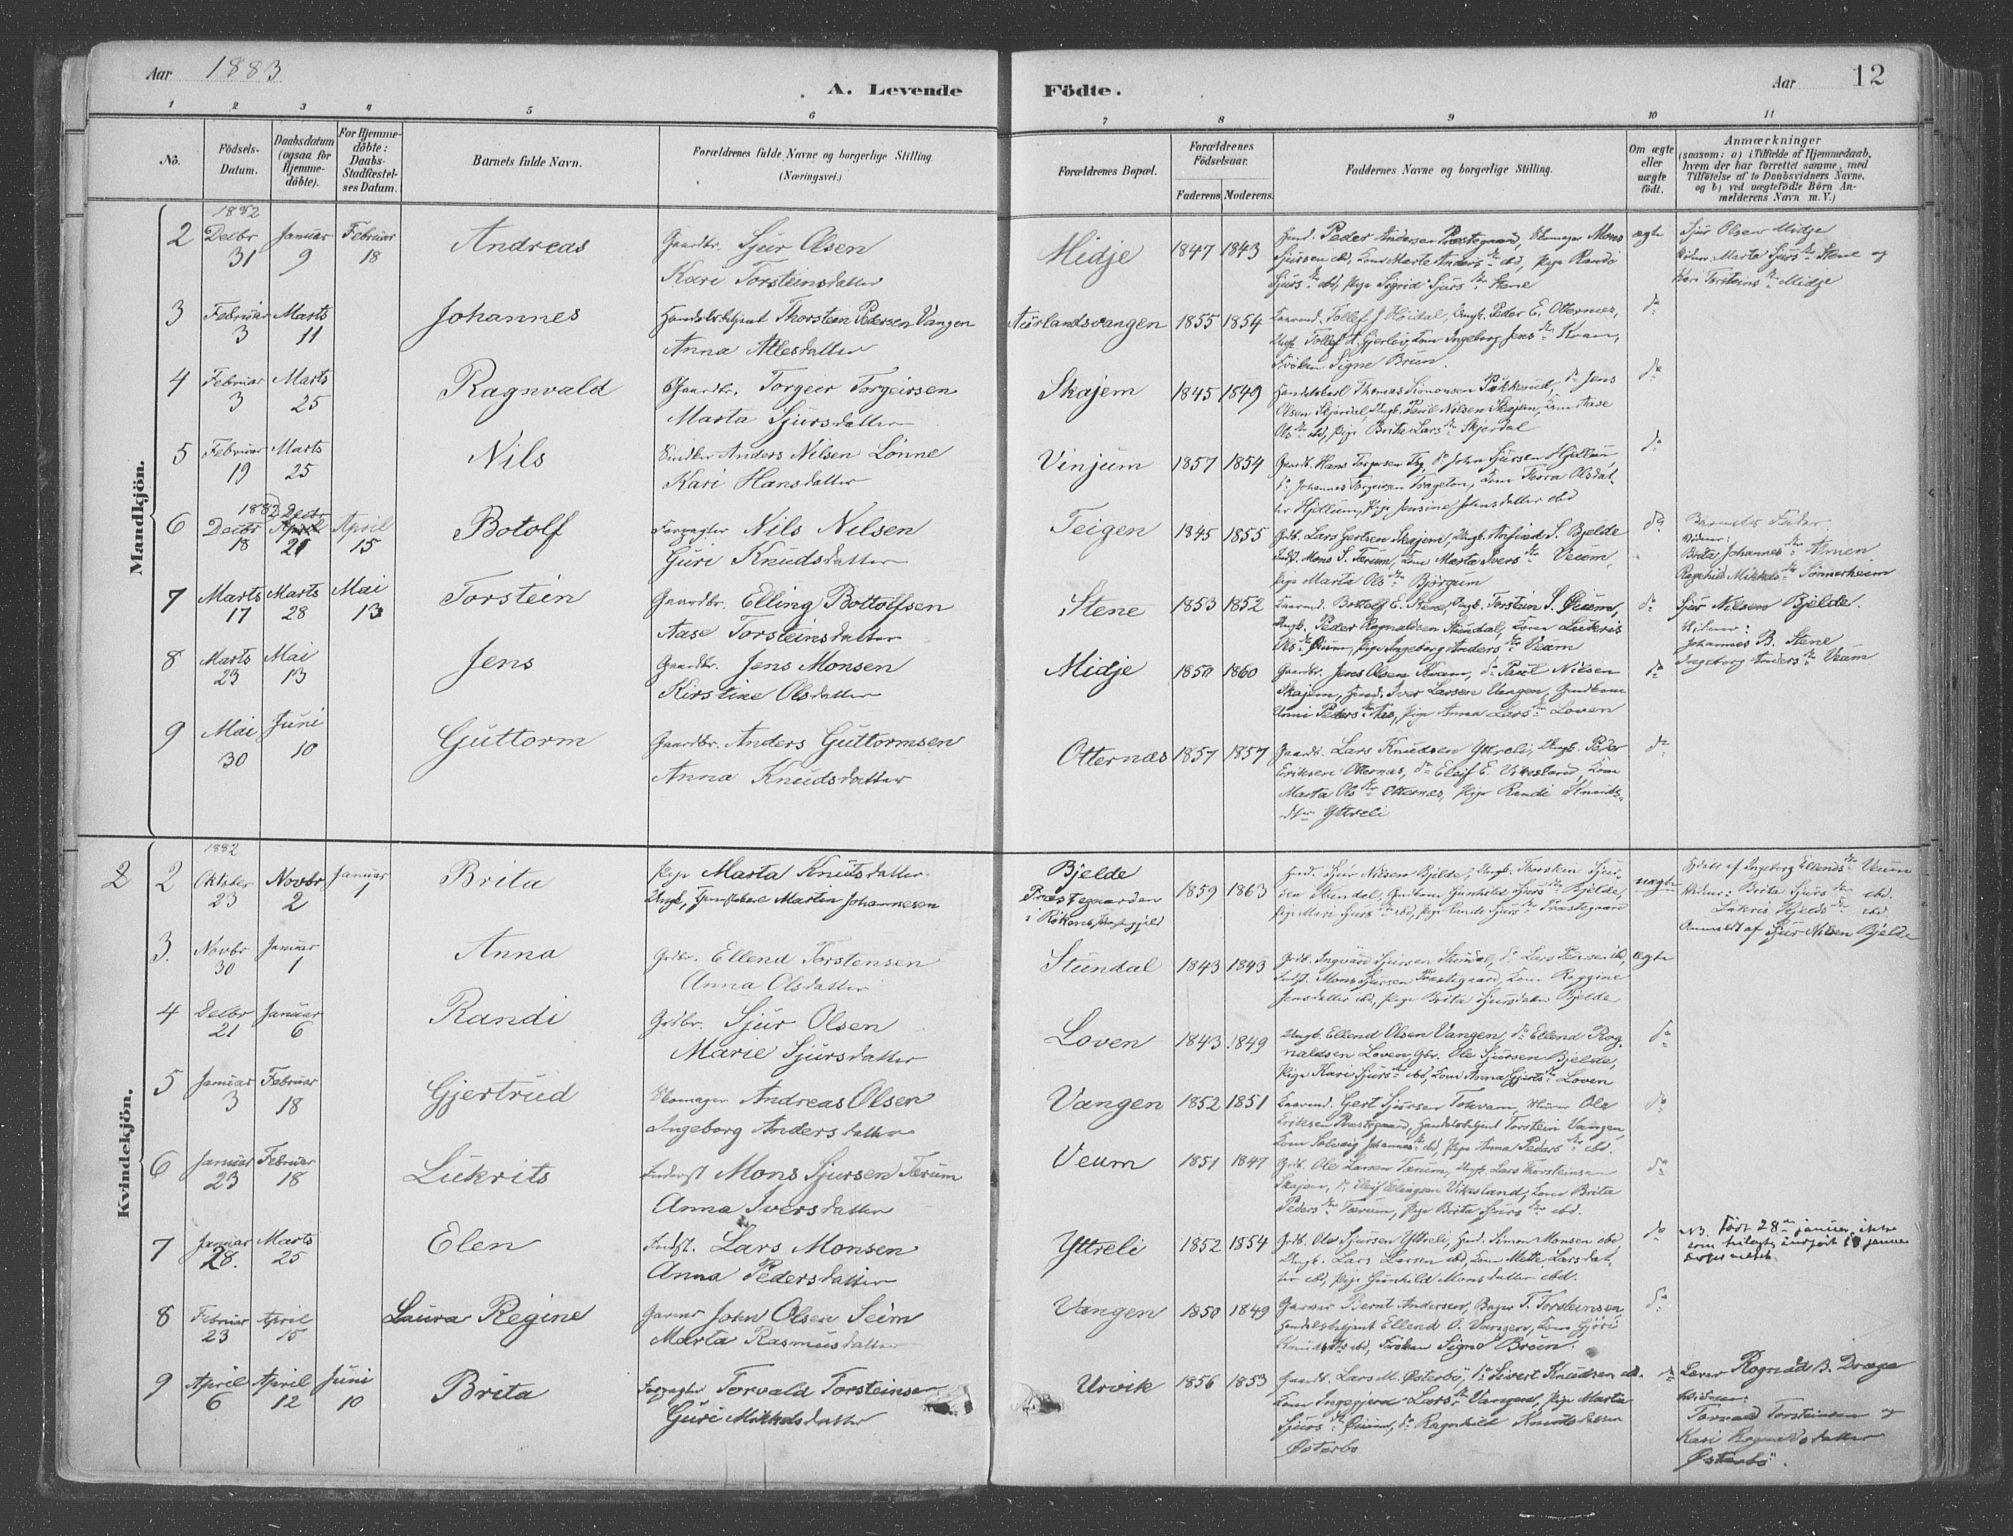 Aar 1883
A. Levende Födte.
Aar 12
1 2 3 4 5 6 7 8 9 10 11
No.
Födsels-Datum.
Daabsdatum (ogsaa for Hjemme-döbte).
For Hjemme-döbte: Daabs-Stadfæstel-ses Datum.
Barnets fulde Navn.
Forældrenes fulde Navne og borgerlige Stilling.
(Næringsvei.)
Forældrenes Bopæl.
Forældrenes Födselsaar.
Faderens Moderens
Faddernes Navne og borgerlige Stilling.
Om ægte eller uægte födt.
Anmærkninger
(saasom: a) i Tilfælde af Hjemmedaab,
hvem der har forrettet samme, med
Tilföielse af to Daabsvidners Navne,
og b) ved uægtefödte Börn An-
melderens Navn m. V.)
Mandkjön.
2 1882 Decbr 31 Januar 9 Februar 18 Andreas Gaardbr. Sjur Olsen
Kari Torsteinsdatter
Midje 1847 1843 Peder Andersen Præstegaard, Skomager Mons
Sjursen ibd, Kone Marta Anders dtr ibd, Pige Randi
Sjurs dtr ibd, Pige Sigrid Sjurs dtr Stene
ægte Sjur Olsen Midje
Vidner Marta Sjurs dtr Stene og
Kari Torsteins dtr Midje
3 Februar 3 Marts 11 Johannes Handelsbetjent Thorstein Pedersen Vangen
Anna Atlesdatter
Aurlandsvangen 1855 1854 Tollef J. Höidal, Ungk. Peder E. Otternes,
Tollef A. Gjerlöv, Kone Ingeborg Jens dtr Kvam,
Fröken Signe Brun.
do
4 Februar 3 Marts 25 Ragnvald Gaardbr. Torgeir Torgeirsen
Marta Sjursdatter
Skajem 1845 1849 Thomas Simonsen Pukkerud, do Jens
Olsen Skjerdal, Ungk. Paul Nilsen Skajem, Kone Aase
Ols dtr ibd, Pige Brita Lars dtr Skjerdal
do
5 Februar 19 Marts 25 Nils Anders Nilsen Lönne
Kari Hansdatter
Vinjum 1857 1854 Gaardb. Hans Torgersen Ty, do John Sjursen Hjellum,
do Johannes Torgeirsen Trageton, Kone Thorra Olsdat-
ter Hjellum, Pige Jensine Johnsdatter ibd
do
6 1882 Decbr 18 Decbr 21 April 15 Botolf Forpagter Nils Nilsen
Guri Knudsdatter
Teigen 1845 1855 Gdb. Lars Gertsen Skajem, Ungk. Anfind S. Bjelde
Indst. Mons S. Terum, Kone Marta Ivers dtr Veum,
Pige Marta Ols dtr Bjørgum
do Barnets Fader.
Vidner:
Brita Johannes dtr Almen
Ragnhild Mikkels dtr Sönnerheim
7 Marts 17 Marts 28 Mai 13 Torstein Gaardbr. Elling Bottolfsen
Aase Torsteinsdatter
Stene 1853 1852 Kaarmd. Bottolf E. Stene, Ungk. Torstein S. Øium,
Ungk. Peder Rognaldsen Stundal, Kone Lukris
Ols dtr Øium, Pige Ingeborg Anders dtr Veum
do Sjur Nilsen Bjelde.
Vidner:
Johannes B. Stene
Ingeborg Anders dtr Veum
8 Marts 23 Mai 13 Jens Gaardbr. Jens Monsen
Kirstine Olsdatter
Midje 1850 1860 Gaardbr. Jens Olsen Kvam, do Paul Nilsen
Skajem, Iver Larsen Vangen, Gaardkone
Unni Peders dtr Aae, Pige Anna Lars dtr Loven
do
9 Mai 30 Juni 10 Guttorm Gaardbr. Anders Guttormsen
Anna Knudsdatter
Otternæs 1857 1857 Gaardb. Lars Knudsen Yttreli, Ungk. Peder
Eriksen Otternæs, do Eleif E. Vikesland, Kone
Marta Ols dtr Otternæs, Pige Randi Knuds-
dtr Yttreli
do
Kvindekjön.
2 2 1882 Oktober 23 Novbr 2 Januar 1 Brita Pige Marta Knutsdatter
Ungk. Martin Johannesen
Bjelde
Præstegaarden
1859 1863 Sjur Nilsen Bjelde, Ungk. Thorsten Sjur-
sen Stundal, Gunhild Sjurs dtr Bjelde,
Pige Mari Sjurs dtr ibd, Pige Randi Sjurs dtr Præstegaard
uægte Ingeborg Ellends dtr Veum
Vidner: Brita Sjurs dtr ibd.
Lukris ibd.
Anmeldt af Sjur Nilsen Bjelde
3. Novbr 30 Januar 1 Anna Grdbr. Ellend Torstensen
Anna Olsdatter
Stundal 1843 1843 Grdb. Ingvard Sjursen Stundal, do Lars Pedersen ibd,
Indst. Mons Sjursen Præstegaard, Kone Roggine
Jensdatter ibd, Pige Brita Sjursdatter Bjelde
ægte
4 Decbr 21 Januar 6 Randi Grdbr. Sjur Olsen
Marie Sjursdatter
Loven 1843 1849 Ungk. Ellend Olsen Vangen, do Ellend Rog-
naldsen Loven, Gbr. Ole Sjursen Bjelde,
Pige Kari Sjurs dtr ibd, Kone Anna Gjerts dtr Loven
do
5 Januar 3 Februar 18 Gjertrud Skomager Andreas Olsen
Ingeborg Andersdatter
Vangen 1852 1851 Kaarmd. Gert Sjursen Tokvam, Ole
Eriksen Præstegaard, Handelsbetjent Torstein Vangen,
Kone Solveig Johannes dtr ibd, Pige Anna Peders dtr ibd.
do
6 Januar 23 Februar 18 Lukrits Inderst Mons Sjursen Terum
Anna Iversdatter
Veum 1851 1847 Grdb. Ole Larsen Terum, Ungk. Lars Thorsteinsen
Skajem, do Eleif Elingsen Vikesland, Kone Brita
Peders dtr Terum, Pige Brita Sjurs dtr ibd.
do
7 Januar 28. Marts 25 Elen Indst. Lars Monsen
Anna Pedersdatter
Yttreli 1852 1854 Grdb. Ole Sjursen Yttreli, Simon Monsen ibd
Ungk. Lars Larsen ibd, Kone Mette Larsdat-
ter ibd, Pige Gunhild Monsdatter ibd.
do N.B. Født 28de januar, ikke
som indført 18 januar
8 Februar 23 April 15 Laura Regine Garver John Olsen Seim
Marta Rasmusdatter
Vangen 1850 1849 Garver Bernt Andersen, Bager T. Torsteinsen,
Handelsbetjent Ellend O. Vangen, Kone Gjöri
Knuds dtr ibd, Fröken Signe Brun.
do
9 April 6 April 12 Juni 10 Brita Forpagter Torvald Torsteinsen
Guri Mikkelsdatter
Urvik 1856 1853 Gaardb. Lars M. Østerbö, do Sivert Knudsen ibd.
Kone Ingegjerd Lars dtr Vangen, Pige Marta
Sjurs dtr Øium, do Ragnhild Knudsdatter
Østerbo
do Lærer Rognald B. Drægo
Vidner:
Torvald Torsteinsen og
Kari Rognaldsdatter
Østerbö.